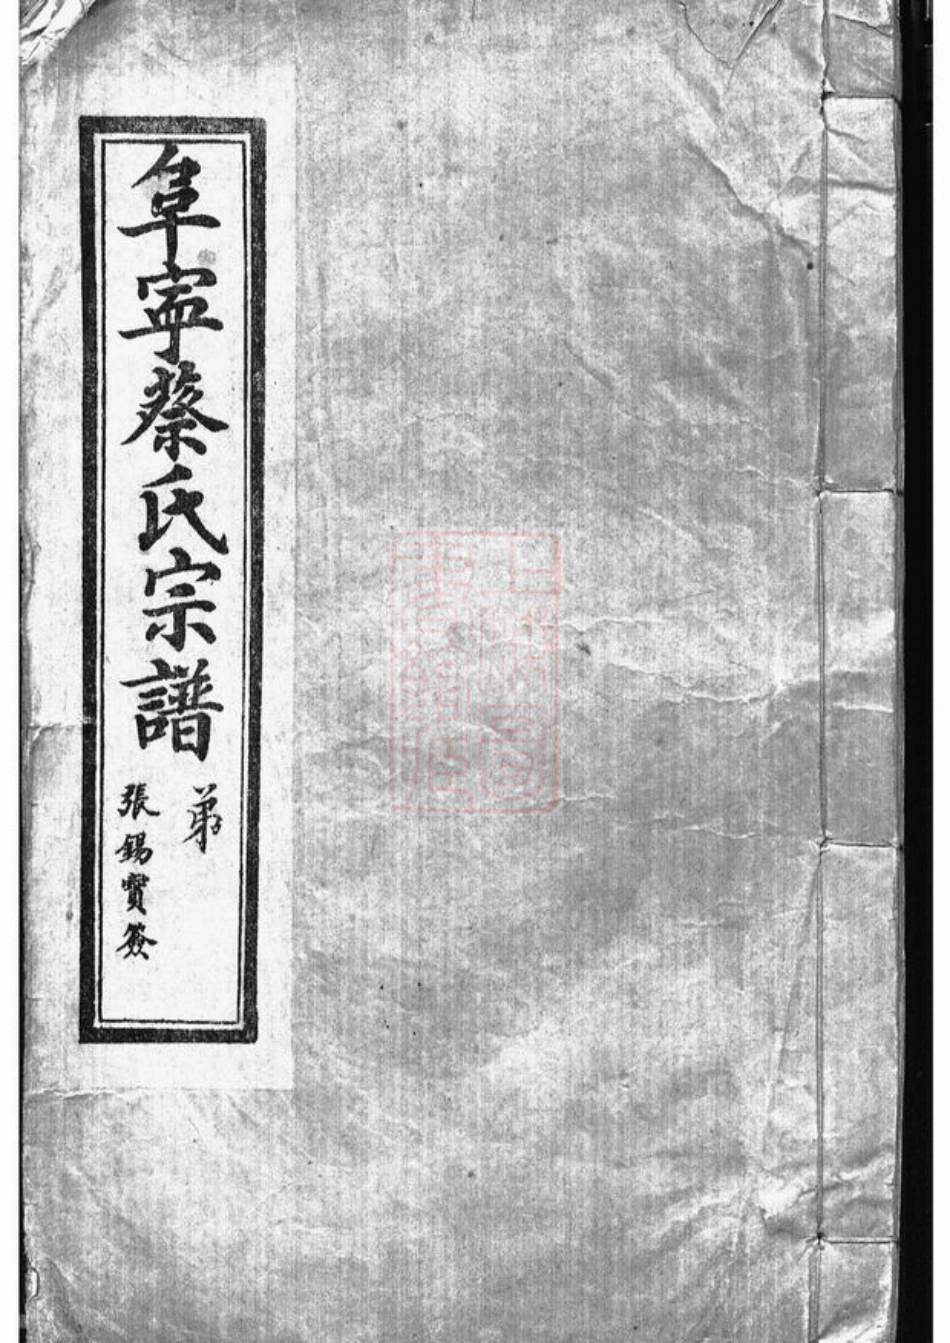 阜寧蔡氏宗譜
弟
張錫寶簽